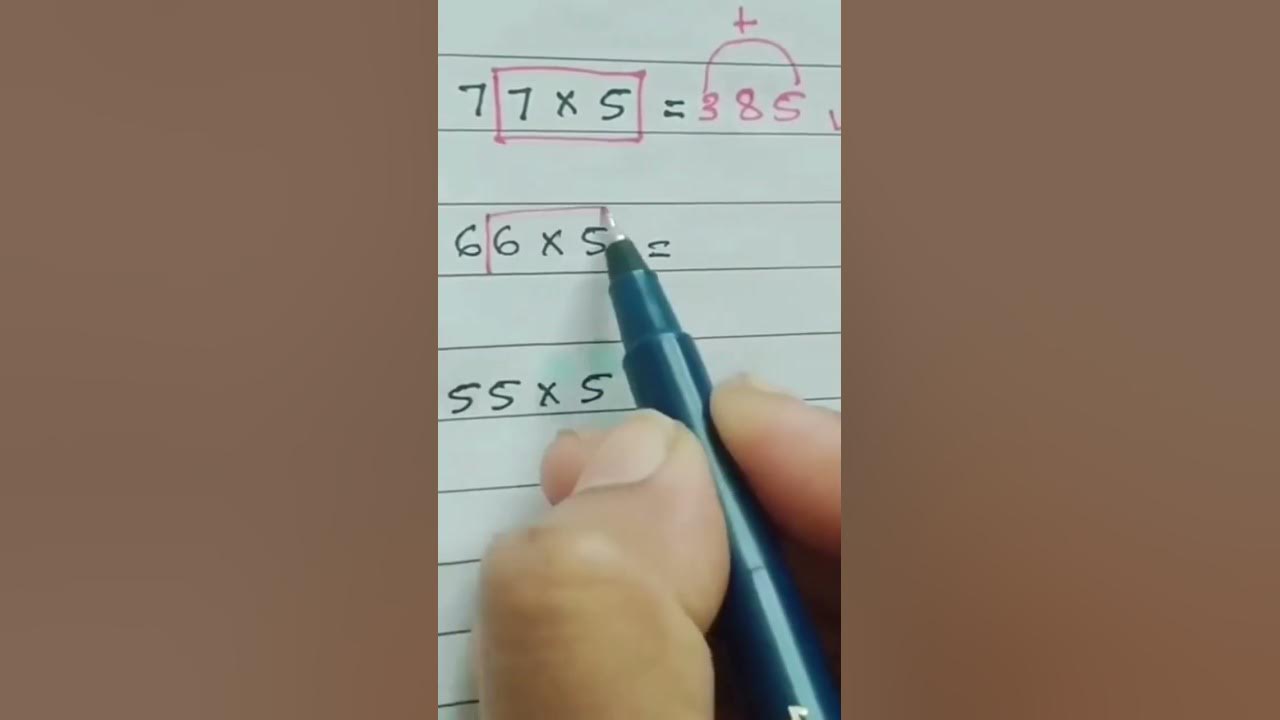 +
77 × 5 = 385
66 × 5 =
55 × 5